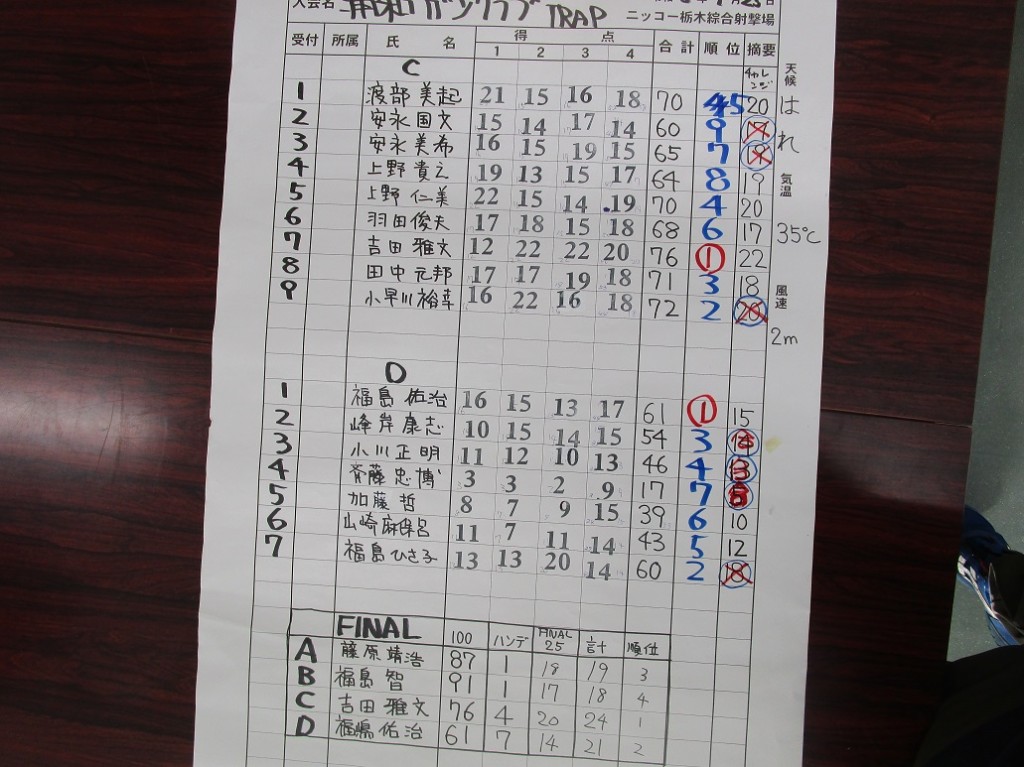 大会名 ガンクラブ TRAP ニッコー栃木綜合射撃場
受付 所属 氏名 得点 1 2 3 4 合計 順位 摘要
C チャレンジ
1 渡部美起 21 15 16 18 70 5 20
2 安永国文 15 14 17 14 60 9
3 安永美希 16 15 19 15 65 7 19
4 上野貴之 19 13 15 17 64 8 19
5 上野仁美 22 15 14 19 70 4 20
6 羽田俊夫 17 18 15 18 68 6 17
7 吉田雅文 12 22 22 20 76 1 22
8 田中元邦 17 17 19 18 71 3 18
9 小早川裕幸 16 22 16 18 72 2 20
D
1 福島佑治 16 15 13 17 61 1 15
2 峰岸康志 10 15 14 15 54 3 14
3 小川正明 11 12 10 13 46 4 13
4 斉藤忠博 3 3 2 9 17 7
5 加藤哲 8 7 9 15 39 6 10
6 山崎麻保呂 11 7 11 14 43 5 12
7 福島ひさ子 13 13 20 14 60 2 18
天候 はれ
気温 35℃
風速 2m
FINAL 100 ハンデ FINAL 25 計 順位
A 藤原靖浩 87 1 18 19 3
B 福島智 91 1 17 18 4
C 吉田雅文 76 4 20 24 1
D 福島佑治 61 7 14 21 2